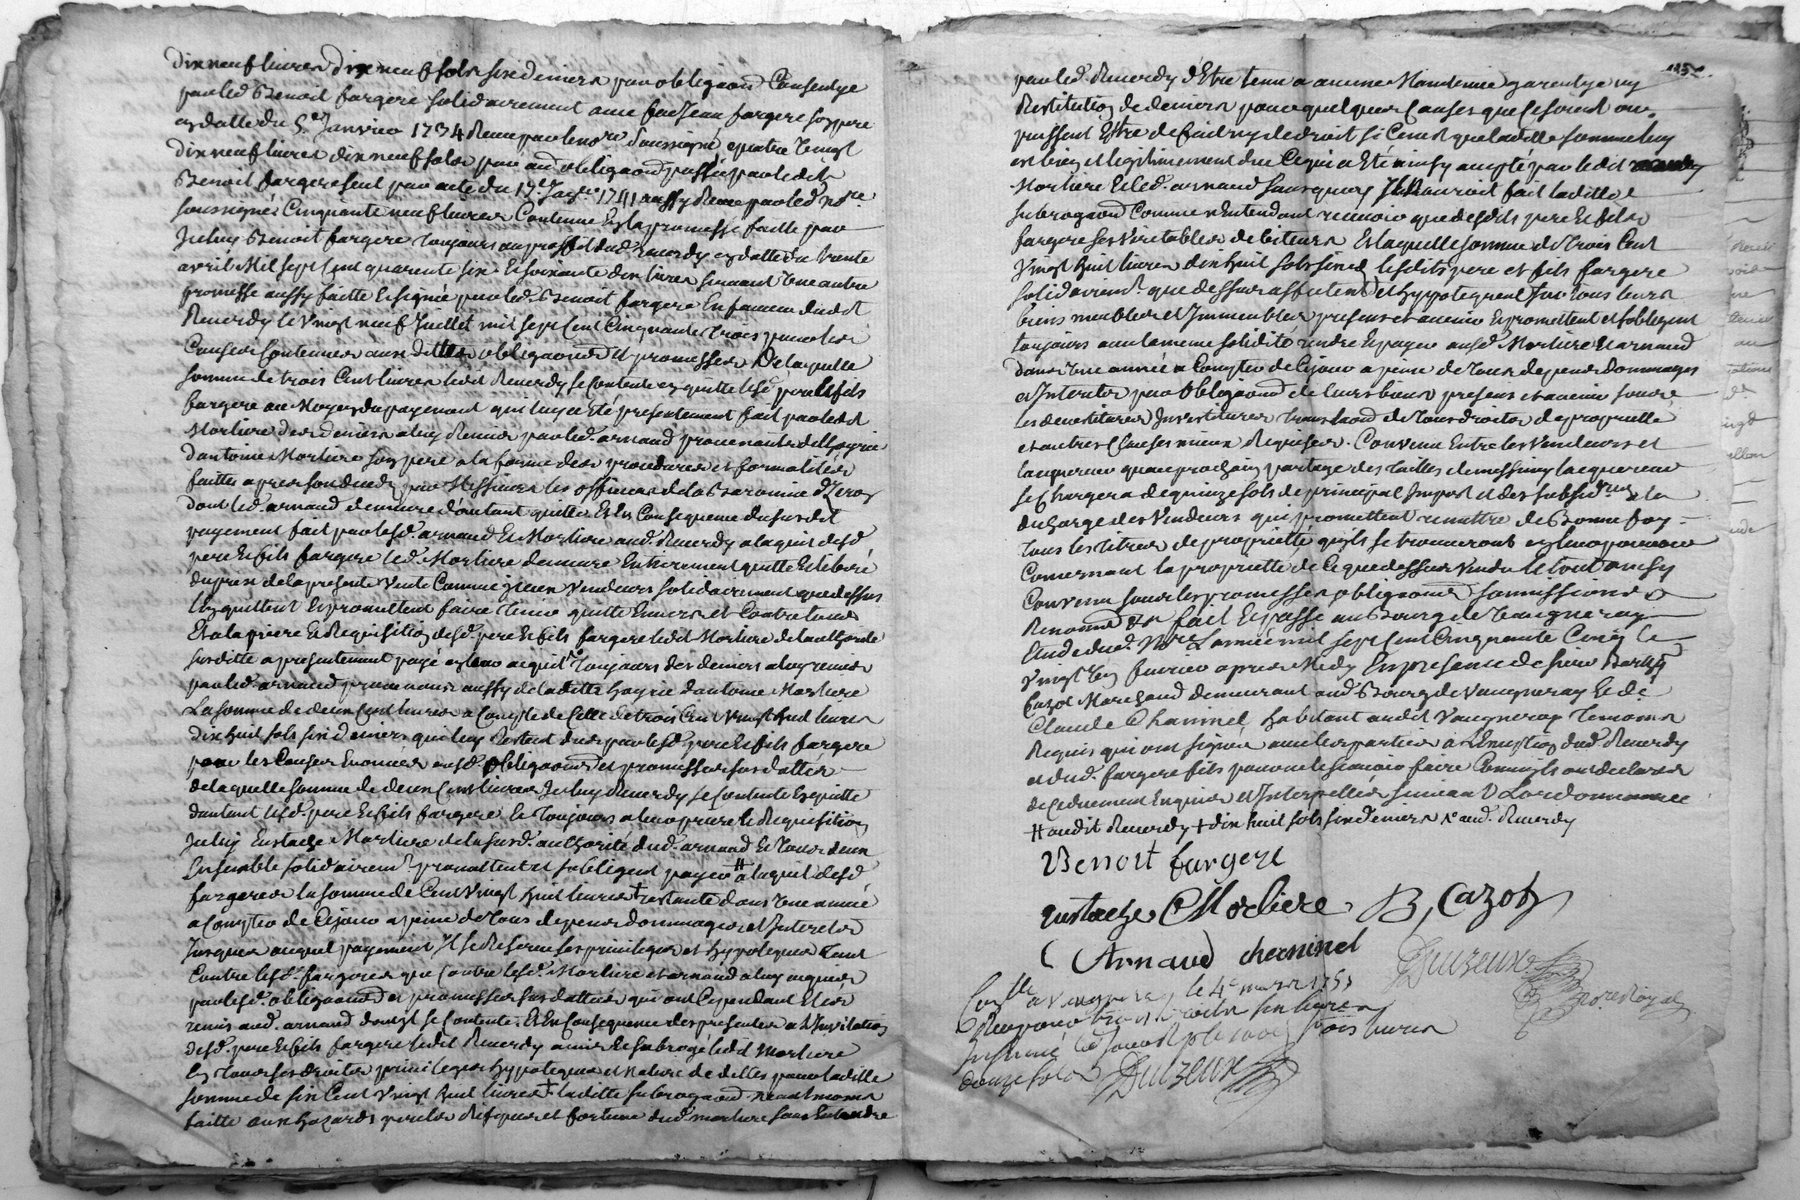 dix neuf livres dix neuf sols six deniers par obligaond Consentye
par led Benoit fargere solidairement avec feu Jean fargere son pere
en datte du 5e Janvier 1734 Receue par le nore soussigné quatre vingt
dix neuf livres dix neuf sols par aue obligaond passée par ledit
Benoit fargere seul par acte du 1741 aussy Receue par led nore
soussigné Cinquante neuf livres Contenue En la promesse faitte par
Iceluy Benoit fargere toujours au proffit dud Reverdy en datte du trente
avril Mil sept Cent quarente six Et soixante dix livres suivant Une autre
promesse aussy faitte Et signée par led. Benoit fargere En faveur dudit
Reverdy le Vingt neuf Juillet mil sept Cent Cinquante trois pour les
Causes Contenues aux dittes obligaons Et promesses De laquelle
somme de trois Cent livres ledit Reverdy se Contente en quitte lesd pere Et fils
fargere au Moyen du payement qui luy a Eté presentement fait par ledit
Morliere des deniers a luy Remis par led. arnaud provenants de l'hoyrie
d'antoine Morliere son pere a la forme des procedures et formalités
faittes apres son deceds par Messieurs les officiers de la Baronnie d'Yzeron
dont led. arnaud demeure d'autant quitte Et En Consequence du susdit
payement fait par lesd. arnaud Et Morliere aud. Reverdy a l'aquit desd
pere Et fils fargere led. Morliere demeure Entierement quitte Et liberé
du prix de la presente Vente Comme Iceux Vendeurs solidairement que dessus
l'en quittent Et promettent faire tenir quitte Envers et Contre tous
Et a la priere Et Requisition desd. pere Et fils fargere ledit Morliere de l'authorité
susditte a presentement payé en leur acquit toujours des deniers a luy remis
par led. arnaud provenants aussy de laditte hoyrie d'antoine Morliere
La somme de deux Cent livres a Compte de Celle de trois Cent Vingt huit livres
dix huit sols six deniers qui luy Restent dues par lesd. pere Et fils fargere
pour les Causes Enoncées auxd. obligaons et promesses sus dattées
de laquelle somme de deux Cent livres Iceluy Reverdy se Contente En quitte
d'autant lesd. pere Et fils fargere Et toujours a leur priere Et Requisition
Iceluy Eustache Morliere de la susd. authorité dud. arnaud Et tous deux
Ensemble solidairemt. promettent et s'obligent payer # a l'aquit desd
fargeres la somme de Cent Vingt huit livres + restante dans Une année
a Compter de Cejour a peine de tous depens dommages et Interets
Jusques auquel payement, Il se Reserve ses privileges et hypoteques tant
Contre lesd. fargeres que Contre lesd. Morliere et arnaud a luy acquis
par lesd. obligaons et promesses sus dattées qui ont Cependant Eté
remis aud. arnaud dont Il se Contente. Et En Consequence des presentes a l'Invitation
desd. pere Et fils fargere ledit Reverdy a mis Et subrogé ledit Morliere
En tous ses droits privileges hypoteques et nature de dettes pour laditte
somme de six Cent Vingt huit livres + laditte subrogaon neantmoins
faitte aux hazards perils Risques et fortune dud. morliere sans Entendre
par led. Reverdy d'Etre tenu a aucune Maintenue garentye ny
Restitution de deniers pour quelques Causes que Ce soient ou
puissent Estre de fait ny de droit si Ce n'est que laditte somme luy
est bien et legitimement due Ce qui a Eté ainsy accepté par ledit
Morliere Et led. arnaud sans quoy Il n'auroit fait laditte
subrogaon Comme n'Entendant recevoir que desdits pere Et fils
fargere ses Veritables debiteurs Et laquelle somme de trois Cent
Vingt huit livres dix huit sols six d. lesdits pere et fils fargere
solidairemt. que dessus affectent et hypotequent sur tous leurs
biens meubles et Immeubles presens et avenir Et promettent et s'obligent
toujours avec la meme solidité rendre Et payer auxd. Morliere Et arnaud
dans Une année a Compter de Cejour a peine de tous depens dommages
et Interets par obligaon de leurs biens presens et avenir sous
les devestitures Investitures translaon de tous droits de propriette
et autres Clauses mieux Requises. Convenu Entre les Vendeurs et
l'acquereur qu'au prochain partage des tailles de messimy l'acquereur
se Chargera de quinze sols de principal Impost et des subsides a la
decharge des Vendeurs qui promettent remettre de Bonne foy
tous les titres de propriette qu'ils se trouveront en leur pouvoir
Concernant la propriette de Ce que dessus Vendu le tout ainsy
Convenu sous les promesses obligaons soumissions
Renonons &a fait Et passé au Bourg de Vaugneray
Etude dud. Nore L'année mil sept Cent Cinquante Cinq le
Vingt fevrier apres Midy En presence de sieur
Cazot Marchand demeurant aud. Bourg de Vaugneray Et de
Claude Chaninel habitant audit Vaugneray temoins
Requis qui ont signé avec les parties a l'Exception dud. Reverdy
et dud. fargere fils pour ne le scavoir faire Comme ils ont declarés
de Ce duement Enquis et Interpellés suivant L'ordonnance
# audit Reverdy + dix huit sols six deniers aud. Reverdy
Benoit fargere
Eustache Morliere B, Cazot
Arnaud chaninel
Duzeux
nore Royal
Conlle a Vaugneray le 4e mars 1755
Duzeux